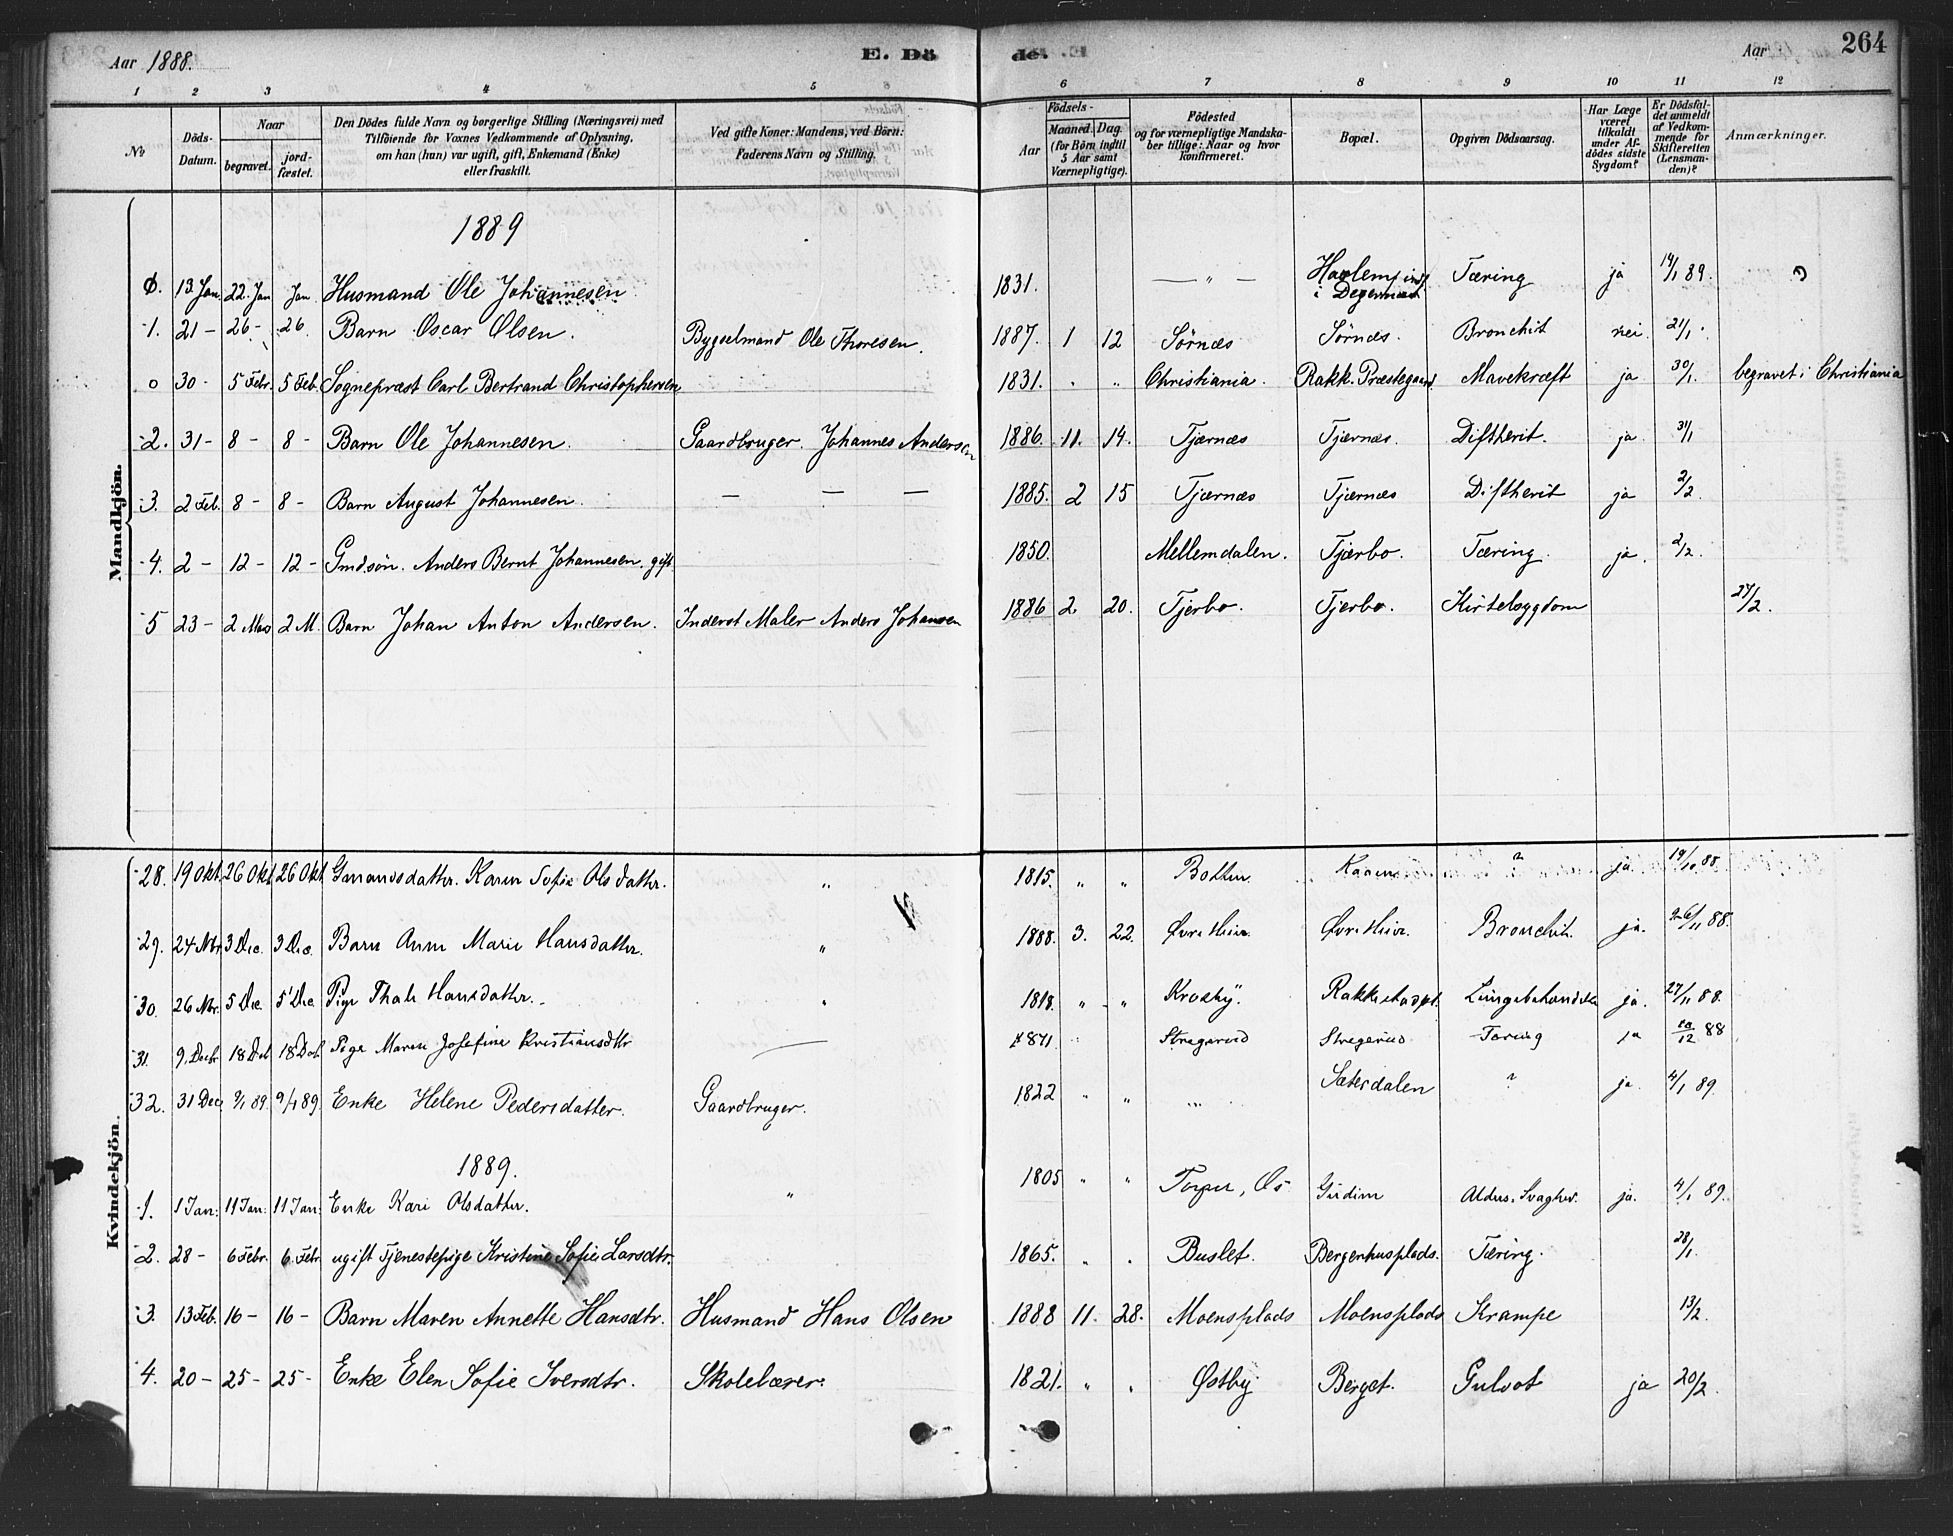 Aar 1888. E. Dö
de. Aar 264
1 2 3 4 5 6 7 8 9 10 11 12
No
Döds-Datum.
Naar
begravet.
jord-fæstet.
Den Dödes fulde Navn og borgerlige Stilling (Næringsvei) med
Tilföiende for Voxnes Vedkommende af Oplysning,
om han (hun) var ugift, gift, Enkemand (Enke)
eller fraskilt.
Ved gifte Koner: Mandens, ved Börn:
Faderens Navn og Stilling.
Aar
Födsels-
Maaned. Dag.
(for Börn indtil
5 Aar samt
Værnepligtige).
Födested
og for værnepligtige Mandska-
ber tillige: Naar og hvor
konfirmeret.
Bopæl.
Opgiven Dödsaarsag.
Har Læge
været
tilkaldt
under Af-
dödes sidste
Sygdom?
Er Dödsfal-
det anmeldt
af Vedkom-
mende for
Skifteretten
(Lensman-
den)?
Anmærkninger.
Mandkjön.
1889
13 Jan. 22. Jan Jan. Husmand Ole Johannesen 1831. — " — i Degernæs Tæring ja 14/1 89.
1. 21 - 26 - 26. Barn Oscar Olsen. Bygselmand Ole Thoresen. 1887. 1 12 Sörnæs Sörnæs. Bronchit nei. 21/1.
0 30 - 5 Febr. 5 Feb. Sognepræst Carl Bertrand Christophersen 1831. " " Christiania. Rakk. Præstegaard. Mavekræft ja 30/1. begravet i Christiania
2. 31 - 8 - 8 - Barn Ole Johannesen. Gaardbruger. Johannes Andersen 1886. 11. 14. Tjærnæs Tjærnæs. Diftherit. ja. 31/1
3. 2 Feb. 8 - 8 - Barn August Johannesen. — — — 1885. 2 15 Tjærnæs Tjærnæs Diftherit ja 2/2.
4. 2 - 12 - 12 - Gmdsön. Anders Bernt Johannesen. gift. 1850. Mellemdalen. Tjærbo. Tæring. ja. 2/2.
5 23 - 2 Mars 2 M. Barn Johan Anton Andersen. Inderst Maler Anders Johansen 1886 2. 20. Tjerbo. Tjerbo. Kirtelsygdom 27/2.
Kvindekjön.
28. 19 Okt. 26 Okt. 26 Okt. Gmandsdatter. Karen Sofie Olsdatter. " 1815. " " ? ja. 19/10. 88.
29. 24 Nbr. 3 Dec. 3 Dec. Barn Anne Marie Hansdatter. " 1888. 3. 22. Bronchit. ja. 26/11 88.
30. 26 Nbr. 5 Dec 5 Dec Pige Thale Hansdatter. " 1818. " " Krosby. ja. 27/11 88.
31. 9. Decbr 18 Dec 18 Dec Pige Maren Josefine Kristiansdtr 1871 " Stregerud Stregerud Tæring ja 10/12 88
32. 31 Dec. 9/1 89. 9/1 89. Enke Helene Pedersdatter. Gaardbruger. 1822 " " ... Sætesdalen ? ja. 4/1 89.
1889.
1. 1 Jan: 11 Jan: 11 Jan: Enke Kari Olsdatter. " 1805 " " Torper, Os Gudim Alders. Svaghed. ja. 4/1 89.
2. 28 - 6 Febr. 6. Febr. ugift Tjenestepige Kristine Sofie Larsdtr. 1865. " " Buslet. Bergenhusplads. Tæring. 28/1.
3. 13 Feb. 16 - 16 - Barn Maren Annette Hansdtr. Husmand Hans Olsen 1888 11. 28. Moensplads Moensplads Krampe 13/2.
4. 20 - 25 - 25 - Enke Elen Sofie Iversdtr. Skolelærer. 1821. " " Østby Berget. Gulsot ja 20/2.